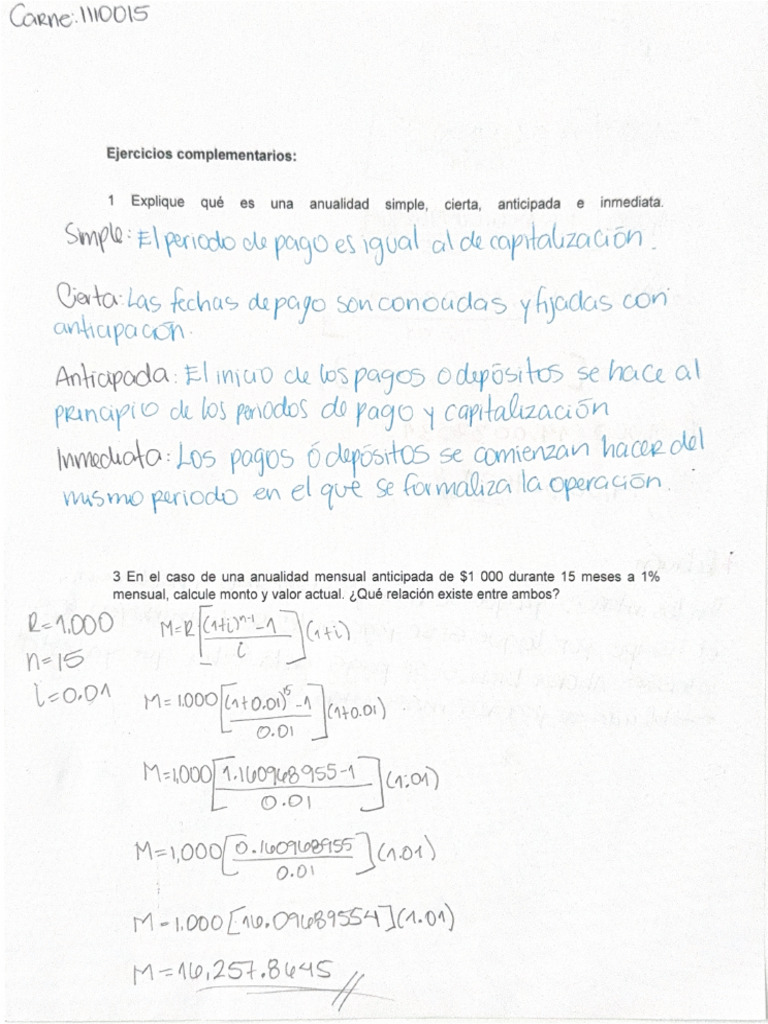 Carne: 1110015
Ejercicios complementarios:
1 Explique qué es una anualidad simple, cierta, anticipada e inmediata.
Simple: El periodo de pago es igual al de capitalización.
Cierta: Las fechas de pago son conocidas y fijadas con
anticipación.
Anticipada: El inicio de los pagos o depósitos se hace al
principio de los periodos de pago y capitalización
Inmediata: Los pagos ó depósitos se comienzan hacer del
mismo periodo en el que se formaliza la operación.
3 En el caso de una anualidad mensual anticipada de $1 000 durante 15 meses a 1%
mensual, calcule monto y valor actual. ¿Qué relación existe entre ambos?
R=1.000
n=15
i=0.01
M=R[(1+i)^n-1 -1 / i](1+i)
M=1.000[(1+0.01)^15 -1 / 0.01](1+0.01)
M=1,000[1.160968955-1 / 0.01](1.01)
M=1,000[0.160968955 / 0.01](1.01)
M=1.000[16.09689554](1.01)
M=16,257.8645